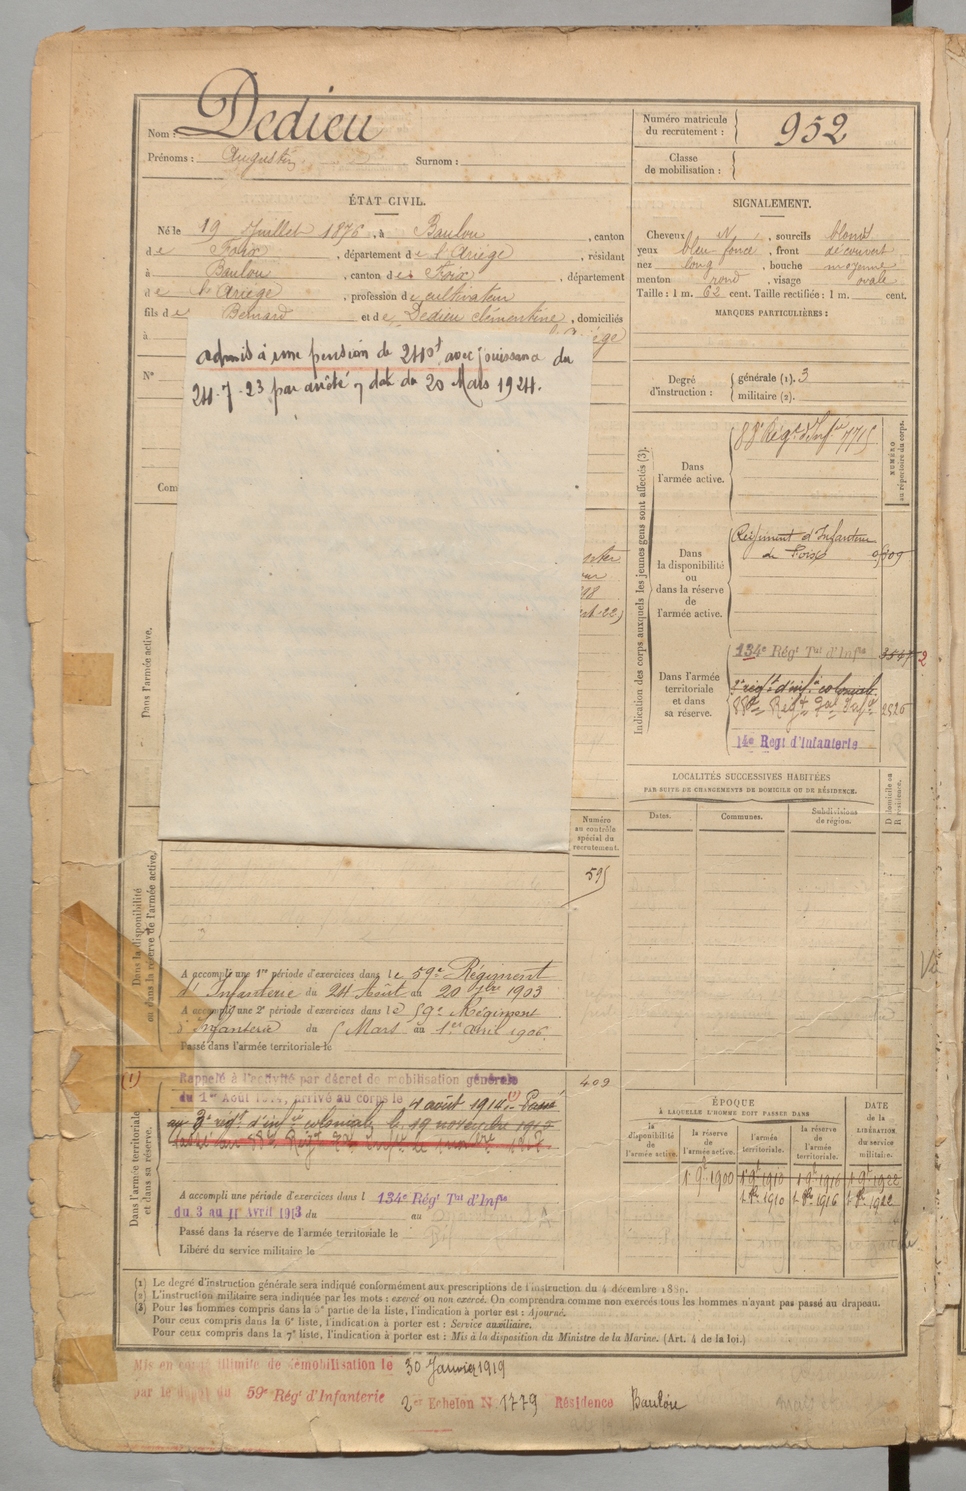 Nom : Dedieu
Prénoms : Augustin Surnom :
Numéro matricule
du recrutement : 952
Classe
de mobilisation :
ÉTAT CIVIL.
Né le 19 Juillet 1876, à Baulou, canton
de Foix, département de l'Ariège, résidant
à Baulou, canton de Foix, département
de l'Ariège, profession de cultivateur
fils de Bernard et de Dedieu Clémentine, domiciliés
à
N°
Com
admis à une pension de 240f avec jouissance du
24-7-23 par arrêté en date du 20 Mars 1924.
SIGNALEMENT.
Cheveux N, sourcils blond
yeux bleu foncé, front découvert
nez long, bouche moyenne
menton rond, visage ovale
Taille : 1 m. 62 cent. Taille rectifiée : 1 m. cent.
MARQUES PARTICULIÈRES :
Degré
d'instruction :
générale (1). 3
militaire (2).
Indication des corps auxquels les jeunes gens sont affectés (3).
NUMÉRO
au répertoire du corps.
Dans
l'armée active.
Régt d'Infie 7715
Dans
la disponibilité
ou
dans la réserve
de
l'armée active.
Régiment d'Infanterie
de Foix
Dans l'armée
territoriale
et dans
sa réserve.
134e Régt Tal d'Infie
3e régt d'infie coloniale
2820
14e Regt d'Infanterie
Dans l'armée active.
LOCALITÉS SUCCESSIVES HABITÉES
PAR SUITE DE CHANGEMENTS DE DOMICILE OU DE RÉSIDENCE.
Dates. Communes. Subdivisions
de région.
Domicile ou
Résidence.
Numéro
au contrôle
spécial du
recrutement.
595
Dans la disponibilité
ou dans la réserve de l'armée active.
A accompli une 1re période d'exercices dans le 59e Régiment
d'Infanterie du 24 Août au 20 7bre 1903
A accompli une 2e période d'exercices dans le 59e Régiment
d'Infanterie du 5 Mars au 1er avril 1906.
Passé dans l'armée territoriale le
409
(1)
Dans l'armée territoriale
et dans sa réserve.
Rappelé à l'activité par décret de mobilisation générale
du 1er Août 1914, arrivé au corps le 4 août 1914. (1) Passé
au 3e régt d'infie coloniale le 19 novembre 1917
A accompli une période d'exercices dans l 134e Régt Tal d'Infie
du 3 au 11 Avril 1913 du au
Passé dans la réserve de l'armée territoriale le
Libéré du service militaire le
ÉPOQUE
A LAQUELLE L'HOMME DOIT PASSER DANS
DATE
de la
LIBÉRATION
du service
militaire.
la
disponibilité
de
l'armée active.
la réserve
de
l'armée active.
l'armée
territoriale.
la réserve
de
l'armée
territoriale.
1er 9bre 1900 1er 9bre 1910 1er 9bre 1916 1er 9bre 1922
1er 8bre 1910 1er 8bre 1916 1er 8bre 1922
(1) Le degré d'instruction générale sera indiqué conformément aux prescriptions de l'instruction du 4 décembre 1889.
(2) L'instruction militaire sera indiquée par les mots : exercé ou non exercé. On comprendra comme non exercés tous les hommes n'ayant pas passé au drapeau.
(3) Pour les hommes compris dans la 5e partie de la liste, l'indication à porter est : Ajourné.
Pour ceux compris dans la 6e liste, l'indication à porter est : Service auxiliaire.
Pour ceux compris dans la 7e liste, l'indication à porter est : Mis à la disposition du Ministre de la Marine. (Art. 4 de la loi.)
Mis en congé illimité de démobilisation le 30 Janvier 1919
par le dépôt du 59e Régt d'Infanterie 2e Echelon N° 1779 Résidence Baulou